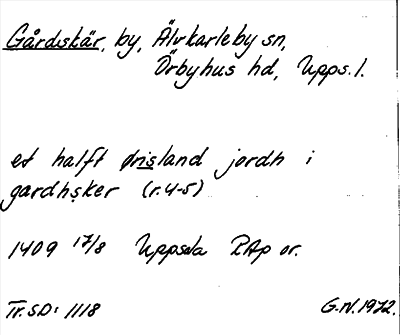 Gårdskär, by, Älvkarleby sn,
Örbyhus hd, Upps. l.
et halft ørisland jordh i
gardhsker (r. 4-5)
1409 17/8 Uppsala RAp or.
Tr. SD: 1118
G.W. 1972.